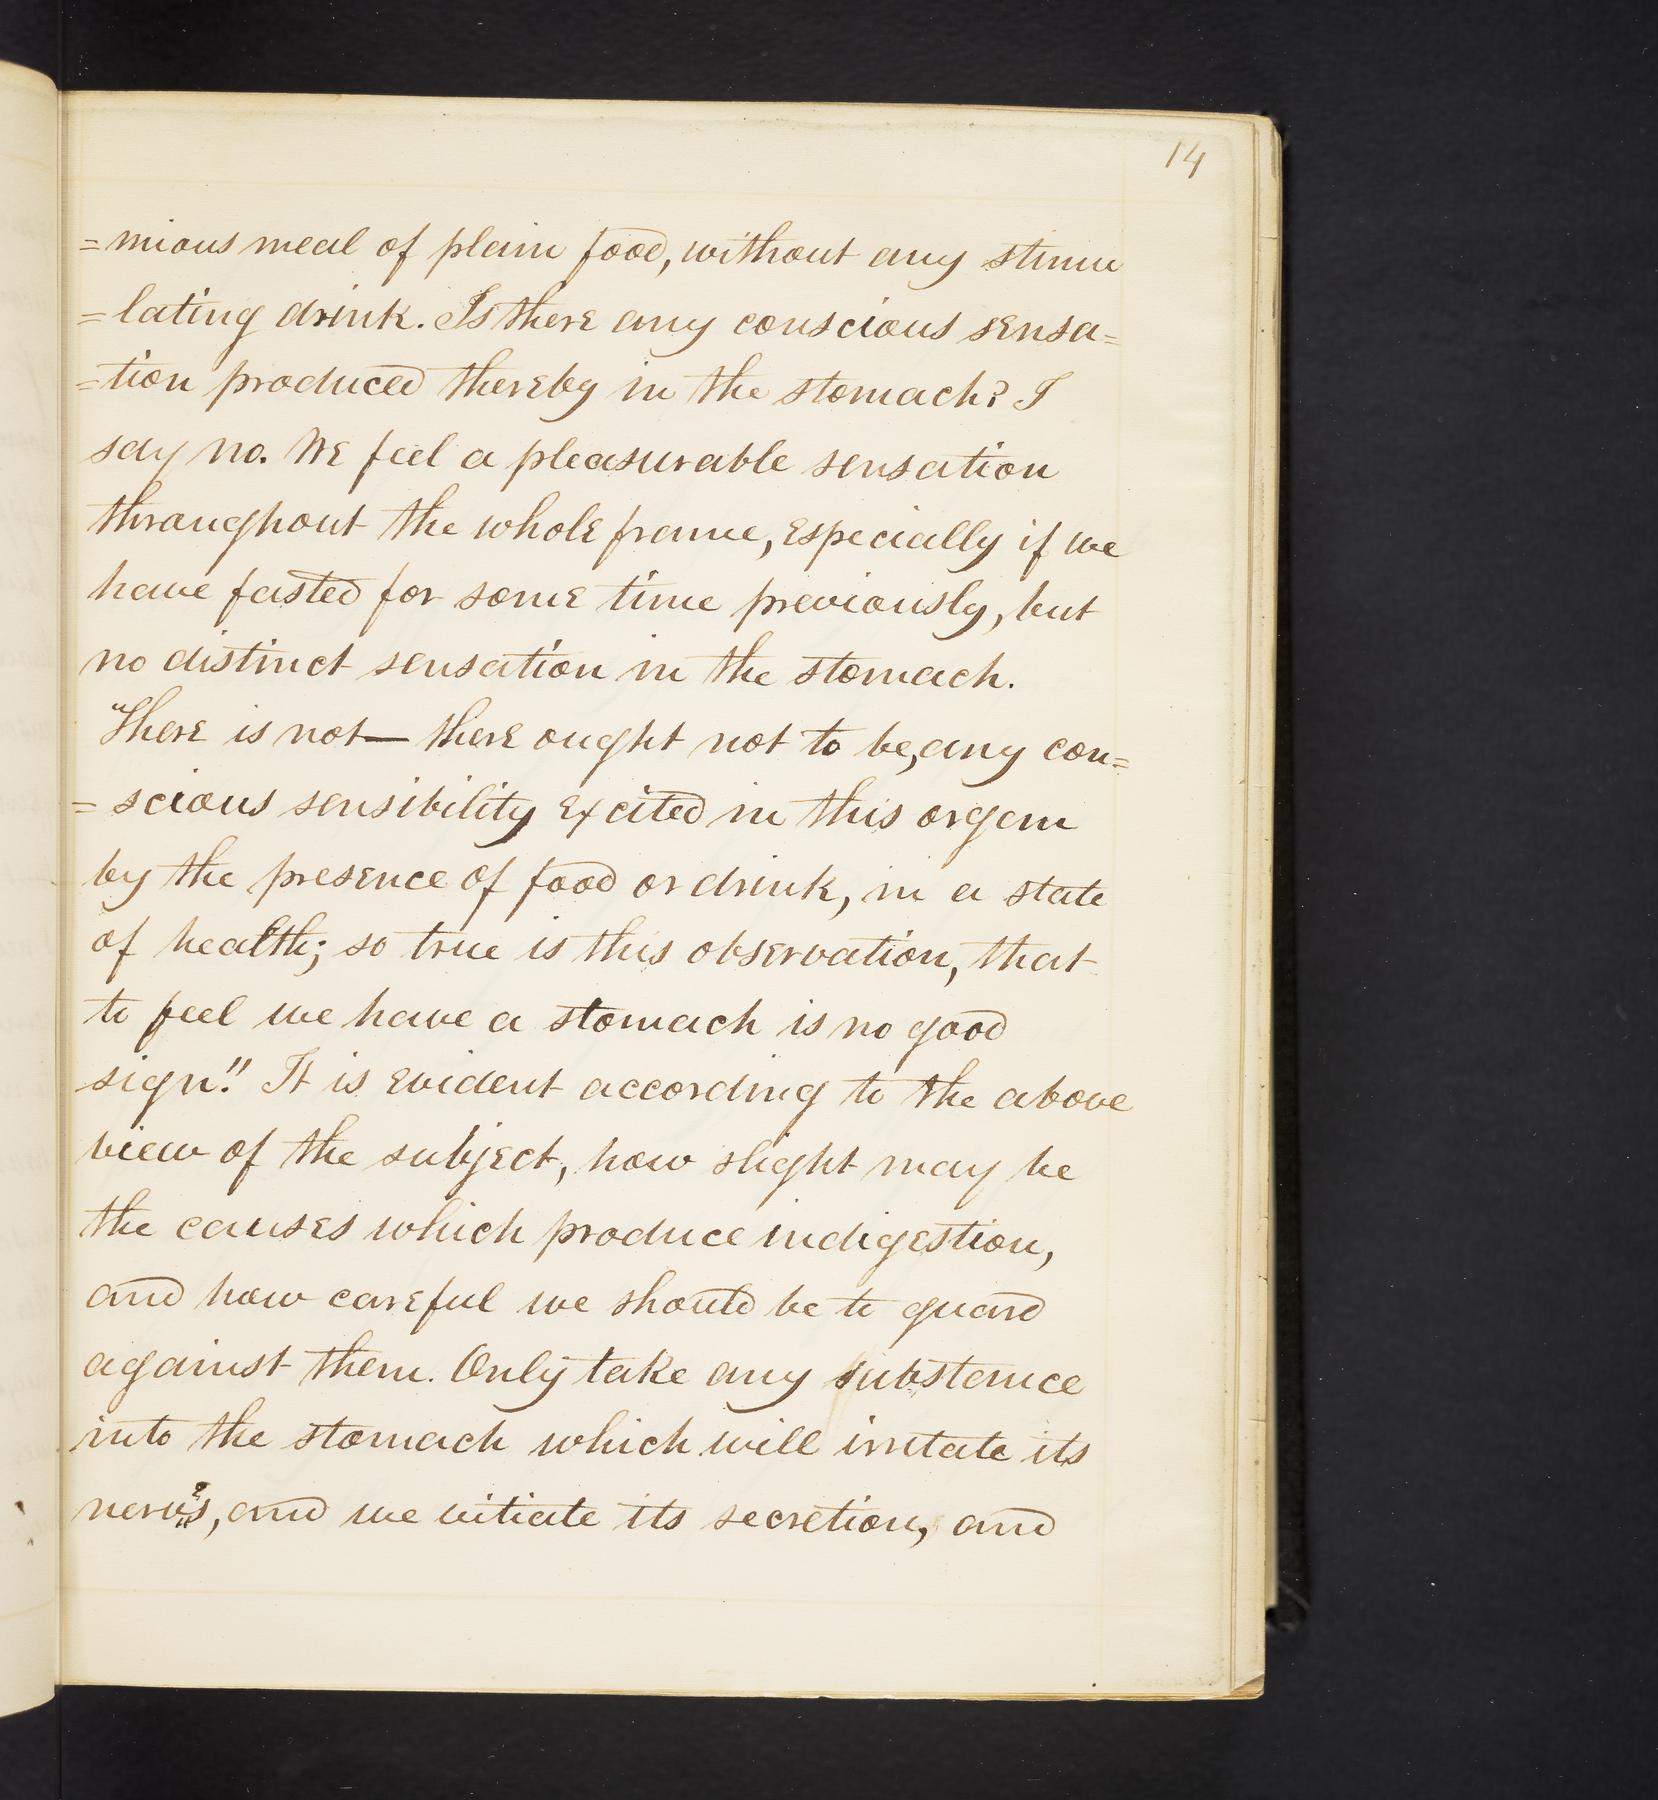 14
=mious meal of plain food, without any stimu
=lating drink. Is there any conscious sensa=
=tion produced thereby in the stomach? I
say no. We feel a pleasurable sensation
throughout the whole frame, especially if we
have fasted for some time previously, but
no distinct sensation in the stomach.
"There is not— there ought not to be, any con=
=scious sensibility excited in this organ
by the presence of food or drink, in a state
of health; so true is this observation, that
to feel we have a stomach is no good
sign." It is evident according to the above
view of the subject, how slight may be
the causes which produce indigestion,
and how careful we should be to guard
against them. Only take any substance
into the stomach which will irritate its
nerves, and we vitiate its secretion, and